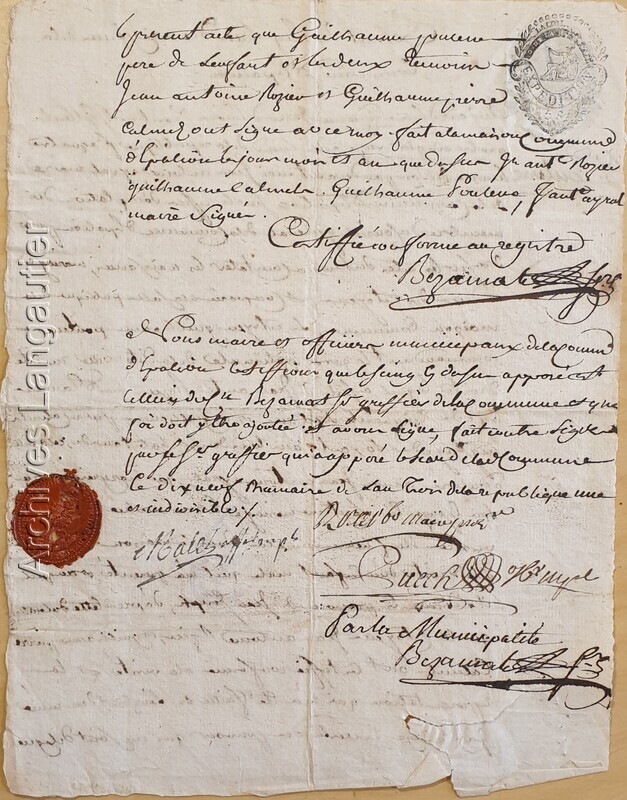 le present acte que Guilhaume poulenc
pere de lenfant et les deux temoins
Jean antoine Rozier et Guilhaume pierre
Calmels ont signe avec moy fait a la maison Commune
d'Espalion le jour mois et an que dessus Jn ant. Rozier
guilhaume Calmels Guilhaume Poulenc, Jant. ayral
maire Signés.
Certiffié conforme au registre
Bezamat
EXPEDITION
Nous maire et officiers municipaux de la Comm
d'Espalion certiffions que le seing cy dessus apposé est
celluy du Sr Bezamat Sre greffier de la Commune et que
foi doit y etre ajoutée et avons signe, fait contre signer
par le Sre greffier qui a apposé le sceau de la Commune
Le dix neuf Brumaire de L'an Trois de la republique une
et indivisible
maire
Puech off. mpl
Par la Municipalité
Bezamat
Archives Langautier